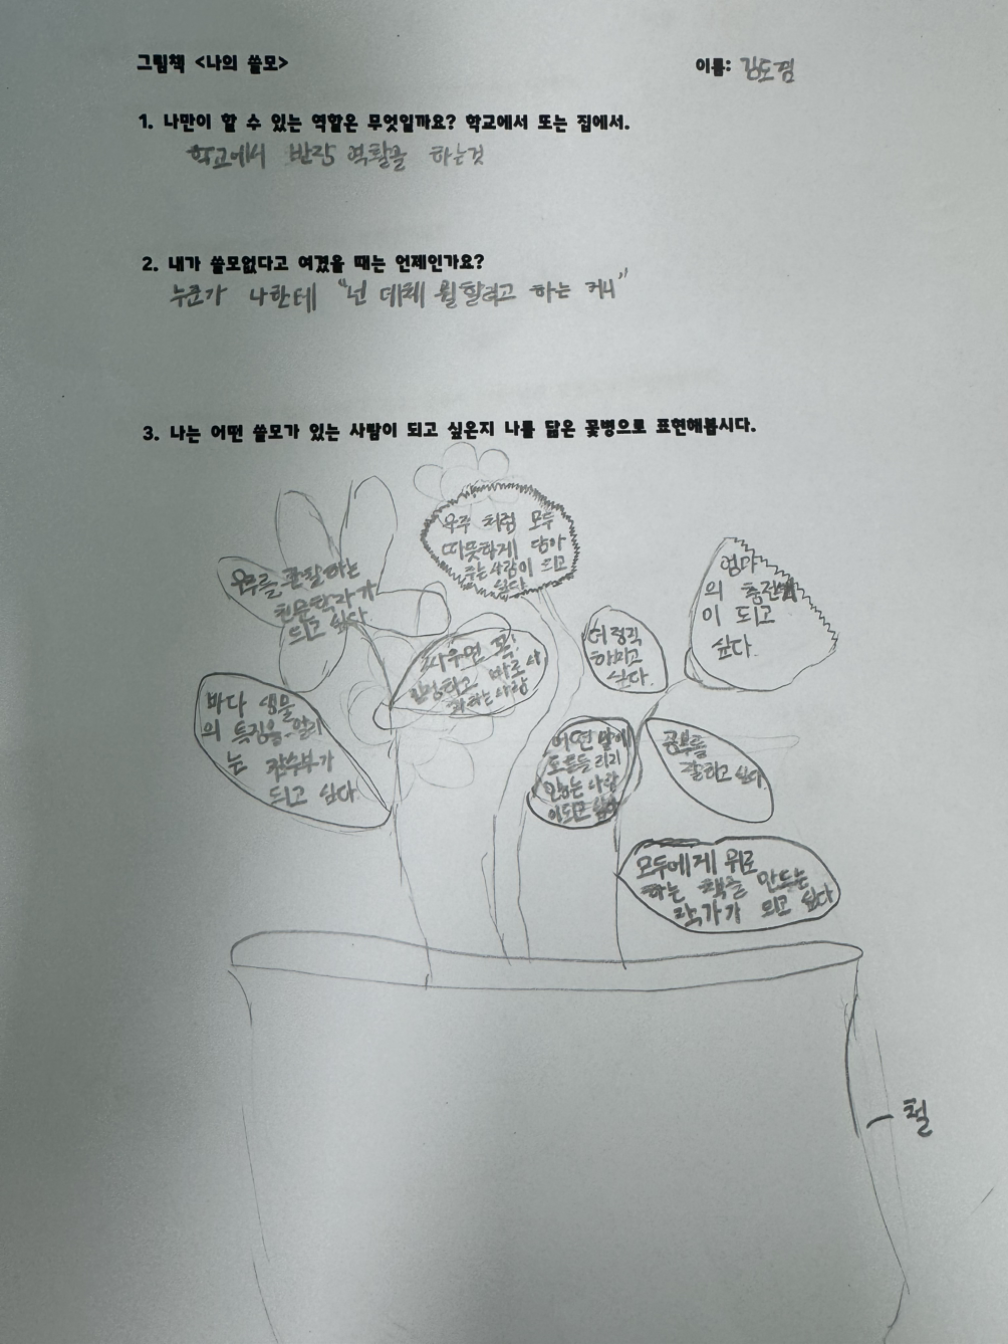 그림책 <나의 쓸모>
이름: 김도겸
1. 나만이 할 수 있는 역할은 무엇일까요? 학교에서 또는 집에서.
학교에서 반장 역활을 하는것
2. 내가 쓸모없다고 여겼을 때는 언제인가요?
누군가 나한테 "넌 데체 뭘할려고 하는 거니"
3. 나는 어떤 쓸모가 있는 사람이 되고 싶은지 나를 닮은 꽃병으로 표현해봅시다.
우주 처럼 모두
따뜻하게 담아
주는 사람이 되고
싶다
우주를 관찰하는
천문학자가
되고 싶다
엄마
의 충전
이 되고
싶다.
싸우면 꼭!
인정하고 바로 사
과하는 사람
더 정직
하지고
싶다.
바다 생물
의 특징을 알리
는 잠수부가
되고 싶다.
어떤 말에
도 흔들리지
않는 사람
이되고 싶다
공부를
잘하고 싶다
모두에게 위로
하는 책을 만드는
작가가 되고 싶다
철